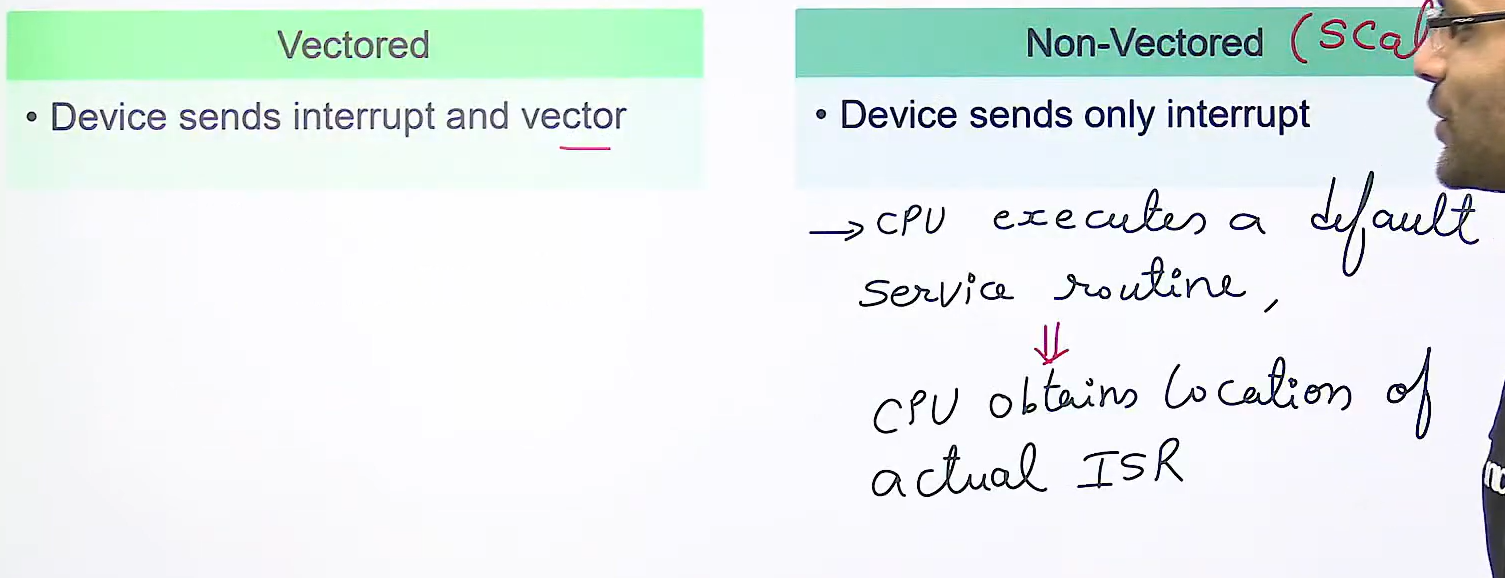 Vectored
• Device sends interrupt and vector
Non-Vectored (Scal
• Device sends only interrupt
→ CPU executes a default
service routine,
⇓
CPU obtains location of
actual ISR